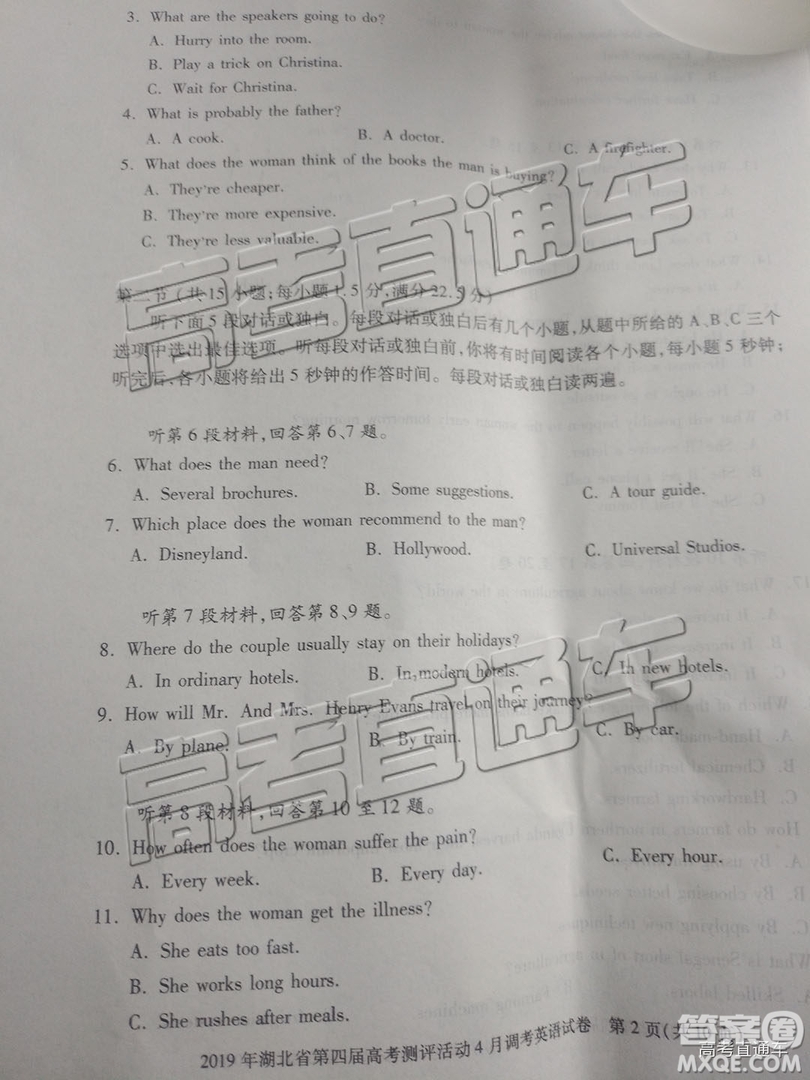 3. What are the speakers going to do?
A. Hurry into the room.
B. Play a trick on Christina.
C. Wait for Christina.
4. What is probably the father?
A. A cook. B. A doctor. C. A firefighter.
5. What does the woman think of the books the man is buying?
A. They're cheaper.
B. They're more expensive.
C. They're less valuable.
第二节(共15小题;每小题1.5分,满分22.5分)
听下面5段对话或独白。每段对话或独白后有几个小题,从题中所给的A、B、C三个
选项中选出最佳选项。听每段对话或独白前,你将有时间阅读各个小题,每小题5秒钟;
听完后,各小题将给出5秒钟的作答时间。每段对话或独白读两遍。
听第6段材料,回答第6、7题。
6. What does the man need?
A. Several brochures. B. Some suggestions. C. A tour guide.
7. Which place does the woman recommend to the man?
A. Disneyland. B. Hollywood. C. Universal Studios.
听第7段材料,回答第8、9题。
8. Where do the couple usually stay on their holidays?
A. In ordinary hotels. B. In modern hotels. C. In new hotels.
9. How will Mr. And Mrs. Henry Evans travel on their journey?
A. By plane. B. By train. C. By car.
听第8段材料,回答第10至12题。
10. How often does the woman suffer the pain?
A. Every week. B. Every day. C. Every hour.
11. Why does the woman get the illness?
A. She eats too fast.
B. She works long hours.
C. She rushes after meals.
2019年湖北省第四届高考测评活动4月调考英语试卷 第2页(共
高考直通车
高考直通车
答案卷
高考直通车
MXQE.COM